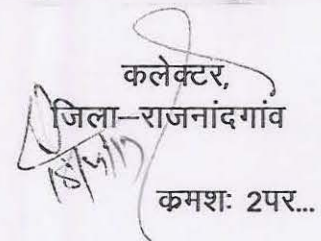 कलेक्टर,
जिला–राजनांदगांव
क्रमशः 2पर...